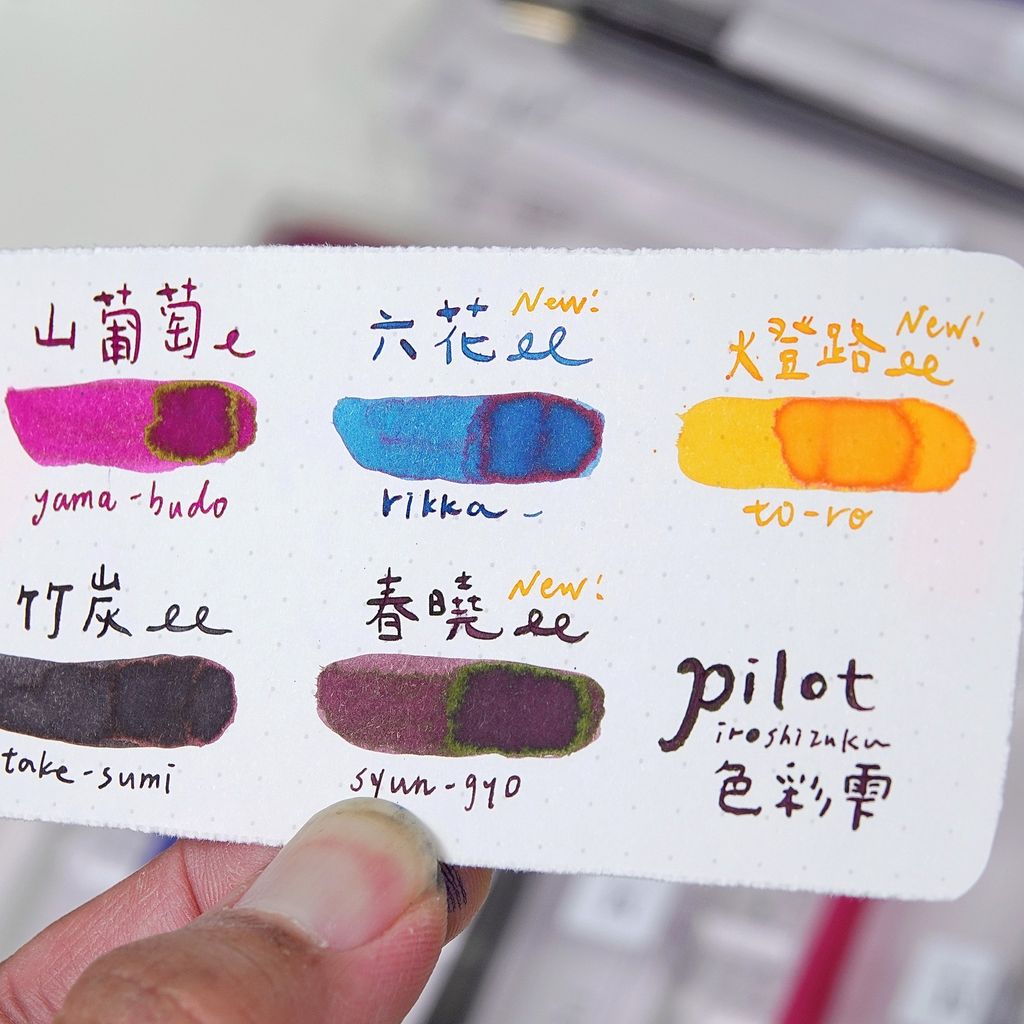 山葡萄
yama-budo
六花 New!
rikka -
燈路 New!
to-ro
竹炭
take-sumi
春曉 New!
syun-gyo
pilot
iroshizuku
色彩雫